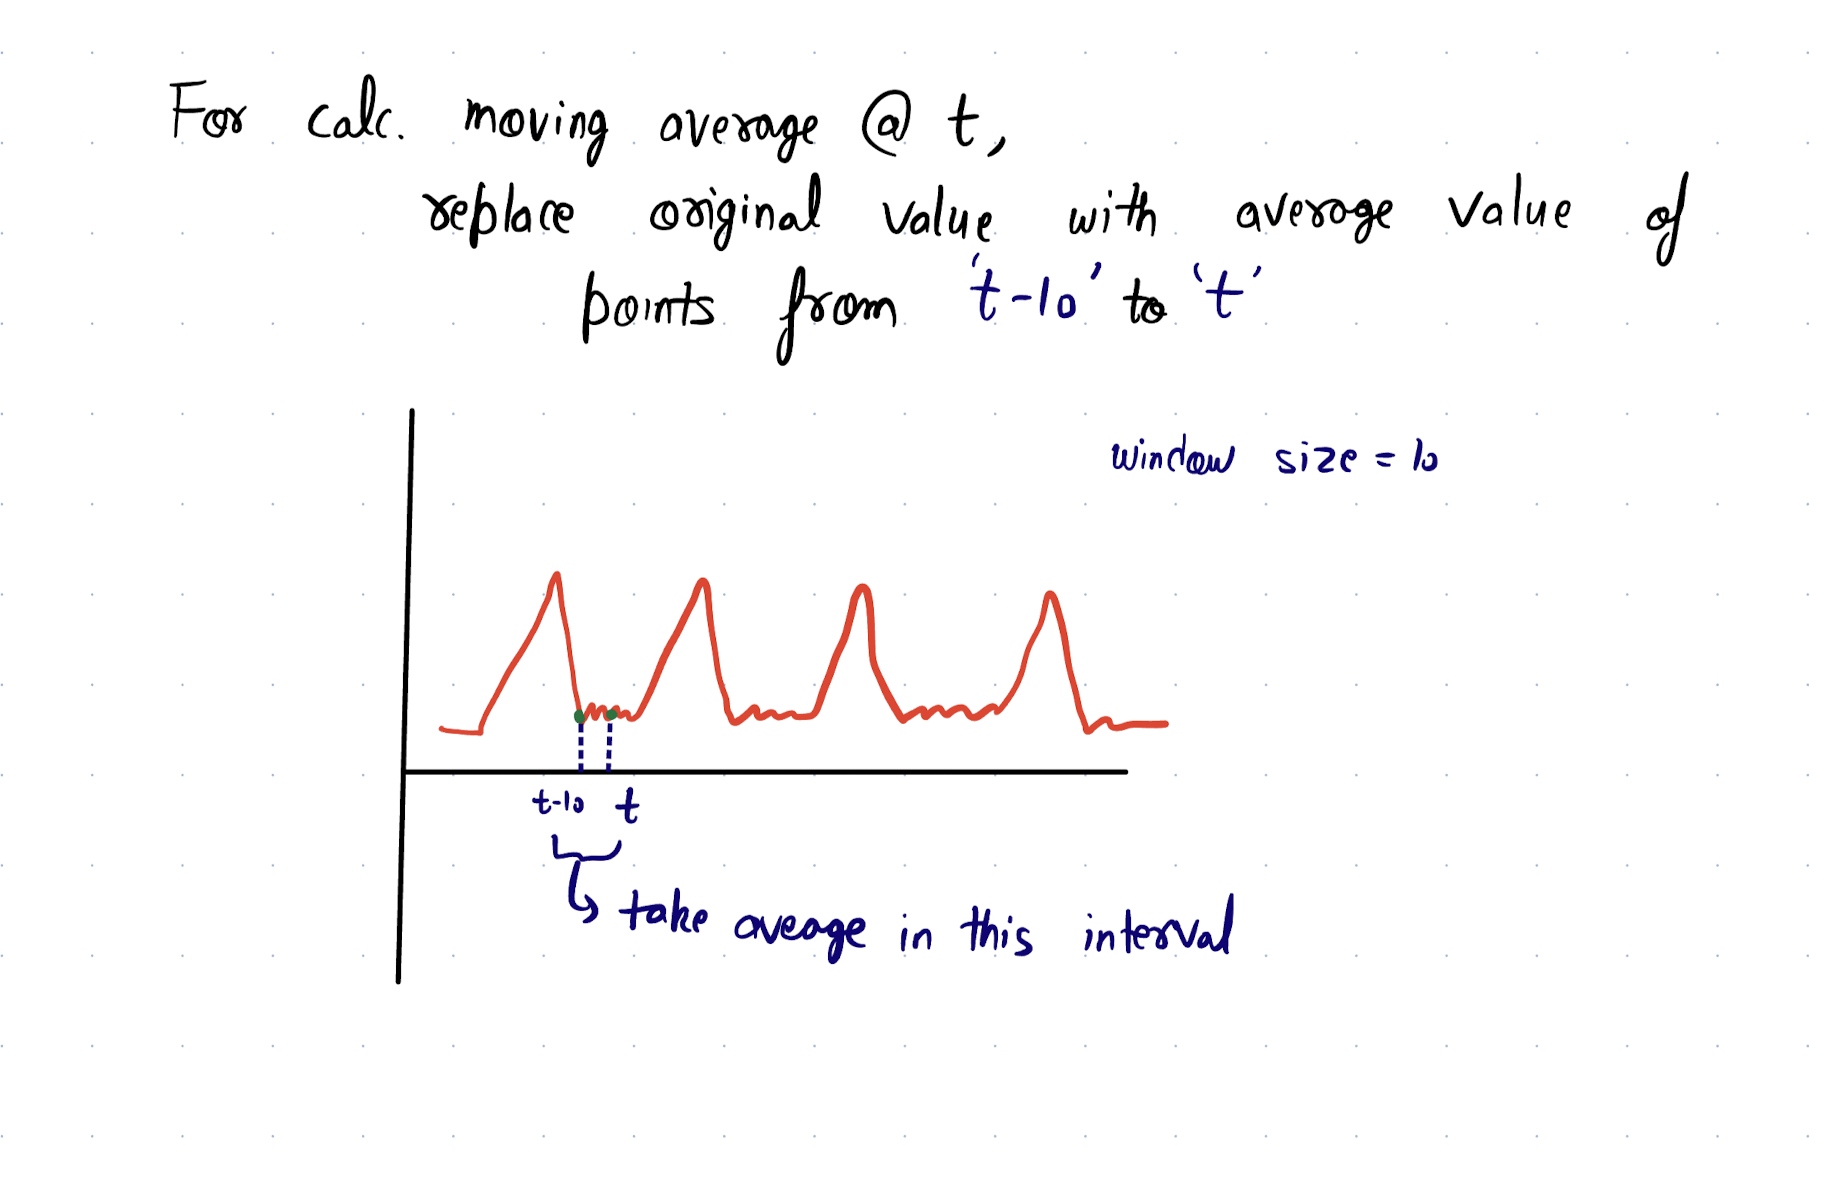 For calc. moving average @ t,
replace original value with average value of
points from 't-10' to 't'
window size = 10
t-10 t
take aveage in this interval